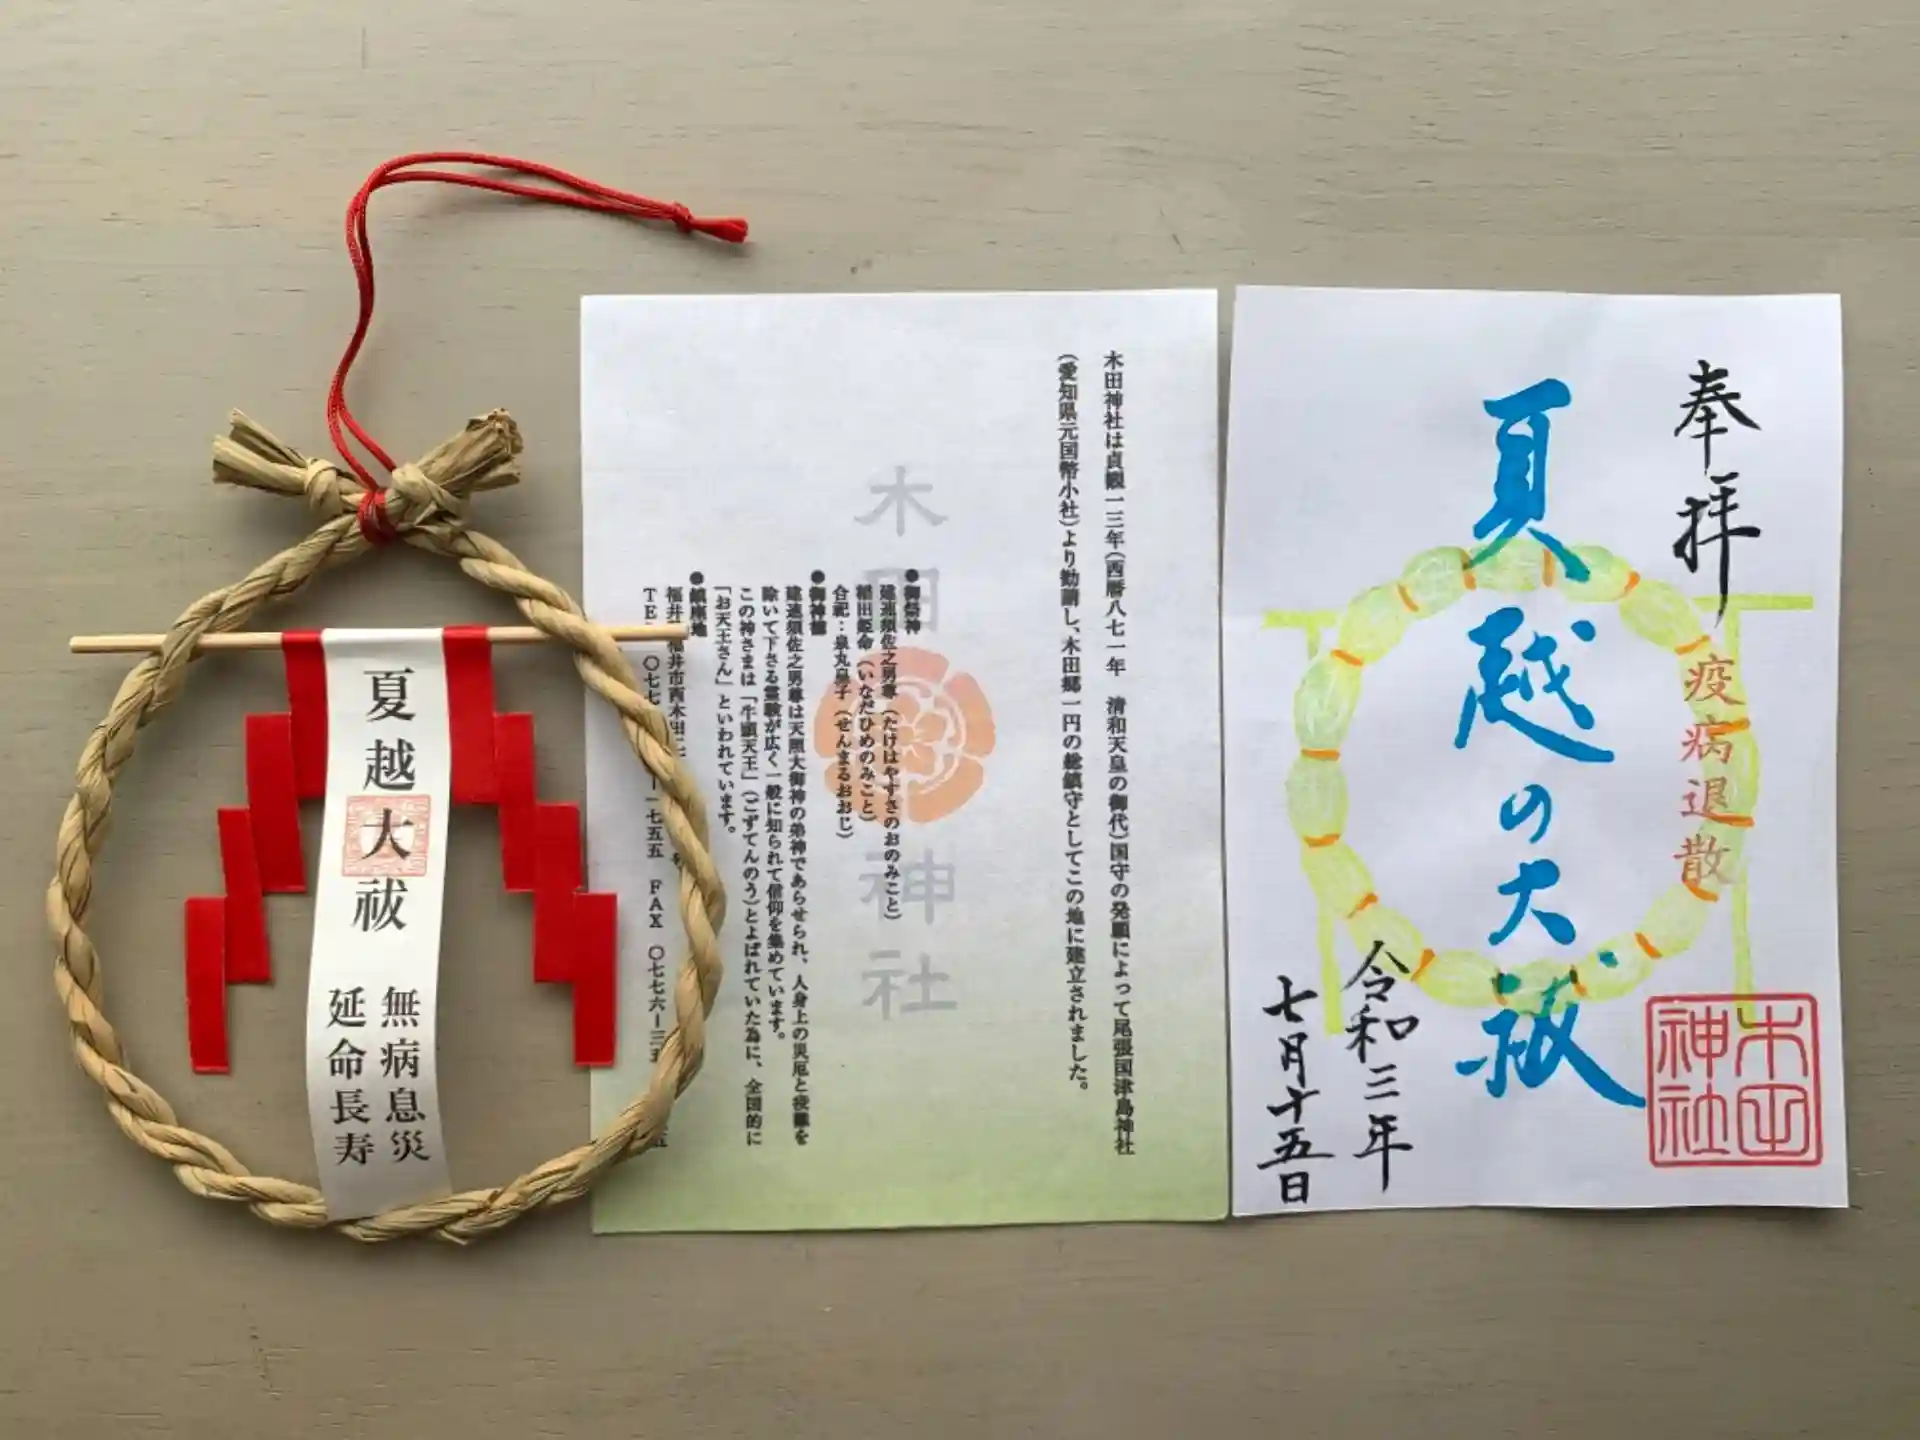 夏越大祓
無病息災
延命長寿
木田神社は貞観一三年(西暦八七一年　清和天皇の御代)国守の発願によって尾張国津島神社
(愛知県元国幣小社)より勧請し、木田郷一円の総鎮守としてこの地に建立されました。
木田神社
●御祭神
建速須佐之男尊(たけはやすさのおのみこと)
稲田姫命(いなだひめのみこと)
合祀：泉丸皇子(せんまるおおじ)
●御神徳
建速須佐之男尊は天照大御神の弟神であらせられ、人身上の災厄と疫難を
除いて下さる霊験が広く一般に知られて信仰を集めています。
この神さまは「牛頭天王」(ごずてんのう)とよばれていた為に、全国的に
「お天王さん」といわれています。
●鎮座地
福井 福井市西木田二
TE 〇七七 ー一七五五　FAX　〇七七六ー三五
奉拝
疫病退散
夏越の大祓
令和三年
七月十五日
木田
神社